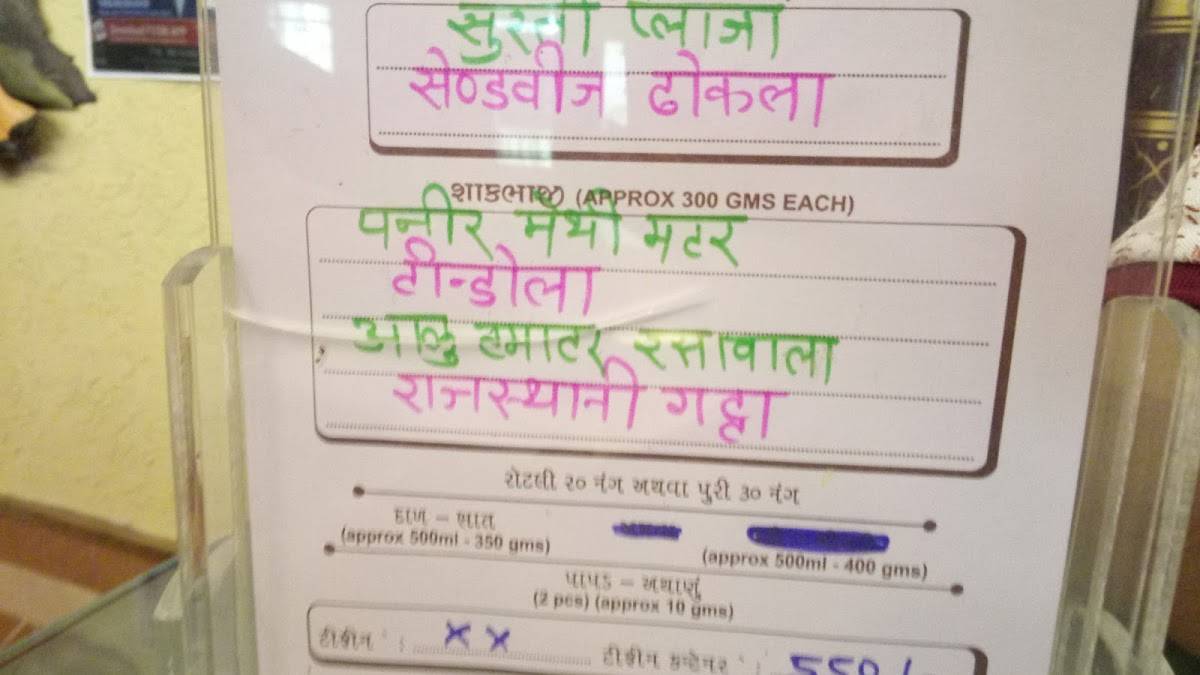 सुरती प्लाजा
सेण्डवीज ढोकला
શાકભાજી (APPROX 300 GMS EACH)
पनीर मेथी मटर
टीन्डोला
आलु टमाटर रसावाला
राजस्थानी गट्टा
રોટલી ૨૦ નંગ અથવા પુરી ૩૦ નંગ
દાળ – ભાત
(approx 500ml - 350 gms)
(approx 500ml - 400 gms)
પાપડ – અથાણું
(2 pcs) (approx 10 gms)
ટીફીન : x x ટીફીન કન્ટેનર : 550/